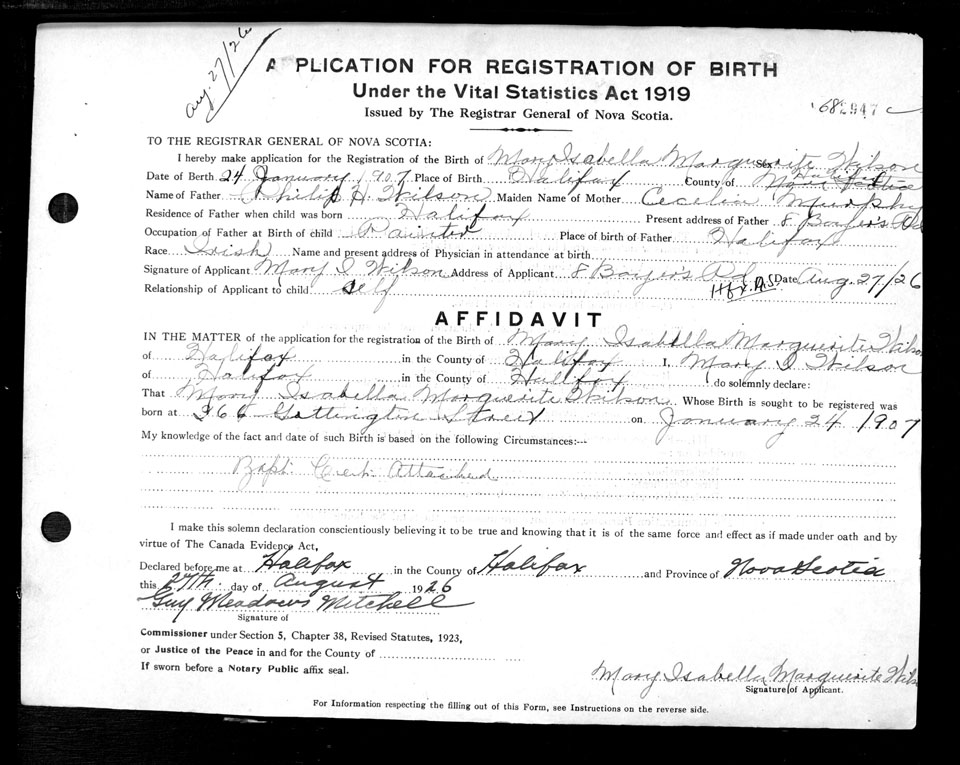 Aug. 27/26
A PLICATION FOR REGISTRATION OF BIRTH
Under the Vital Statistics Act 1919
Issued by The Registrar General of Nova Scotia.
TO THE REGISTRAR GENERAL OF NOVA SCOTIA:
I hereby make application for the Registration of the Birth of Mary Isabella Marguerite Wilson Sex
Date of Birth 24 January 1907 Place of Birth Halifax County of Halifax Nova Scotia
Name of Father Philip H. Wilson Maiden Name of Mother Cecelia Murphy
Residence of Father when child was born Halifax Present address of Father 8 Boyer's Rd
Occupation of Father at Birth of child Painter Place of birth of Father Halifax
Race Irish Name and present address of Physician in attendance at birth
Signature of Applicant Mary I Wilson Address of Applicant 8 Boyer's Rd Date Aug. 27/26
Relationship of Applicant to child self
AFFIDAVIT
IN THE MATTER of the application for the registration of the Birth of Mary Isabella Marguerite Wilson
of Halifax in the County of Halifax I, Mary I Wilson
of Halifax in the County of Halifax do solemnly declare:
That Mary Isabella Marguerite Wilson Whose Birth is sought to be registered was
born at Gottingten Street on January 24 1907
My knowledge of the fact and date of such Birth is based on the following Circumstances:—
Bapt. Cert. Attached
I make this solemn declaration conscientiously believing it to be true and knowing that it is of the same force and effect as if made under oath and by
virtue of The Canada Evidence Act,
Declared before me at Halifax in the County of Halifax and Province of Nova Scotia
this 27th day of August 1926
Guy Meadows Mitchell
Signature of
Commissioner under Section 5, Chapter 38, Revised Statutes, 1923,
or Justice of the Peace in and for the County of
If sworn before a Notary Public affix seal.
Mary Isabella Marguerite Wilson
Signature of Applicant.
For Information respecting the filling out of this Form, see Instructions on the reverse side.